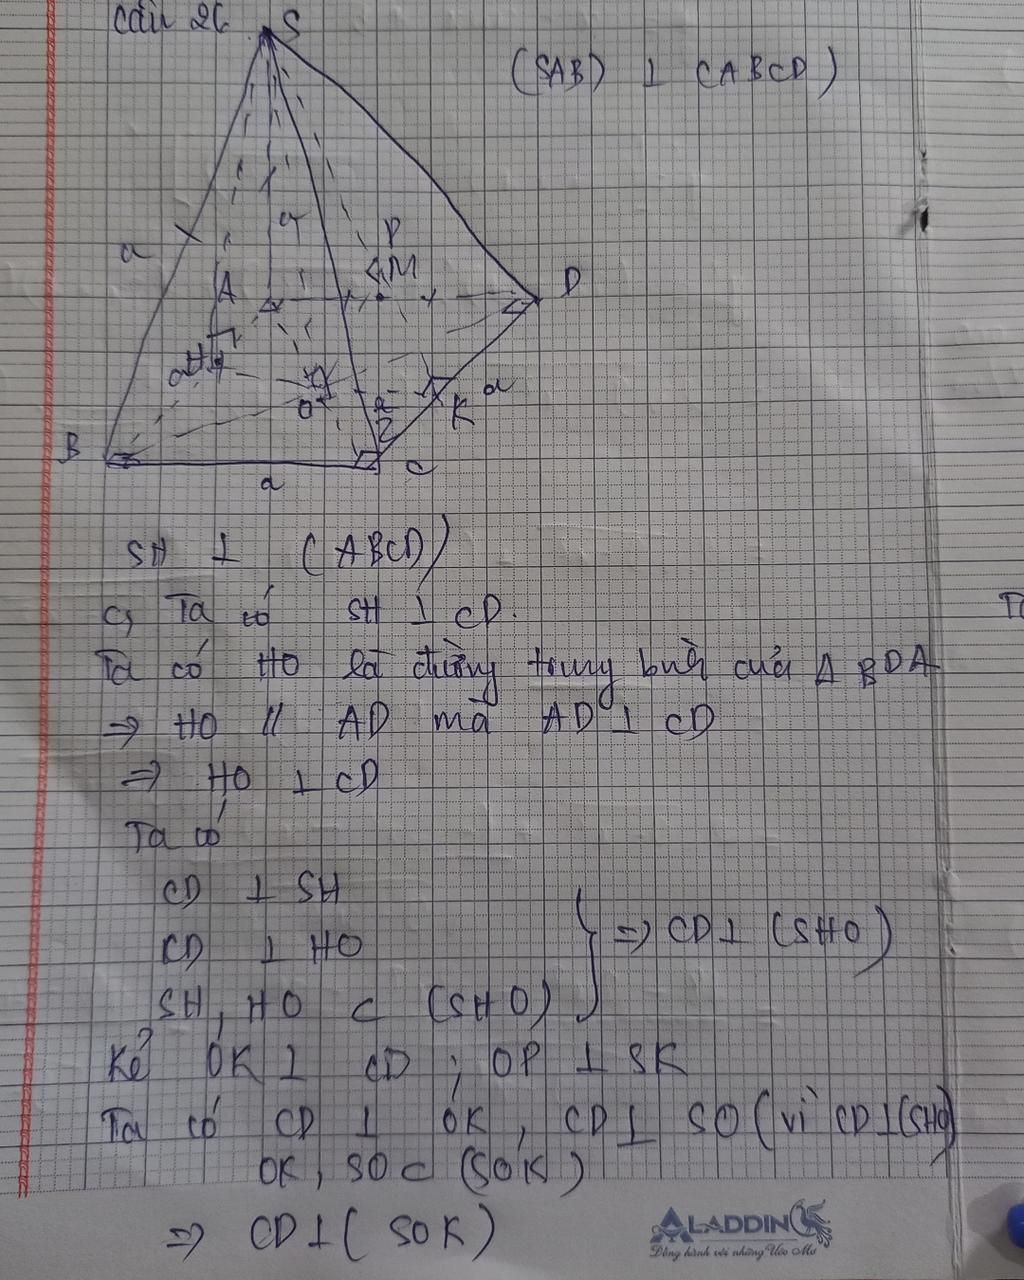 Câu 26
S
(SAB) ⊥ (ABCD)
a
a
P
A
M
D
H
a
O
K
a
B
C
a
SH ⊥ (ABCD)
c, Ta có SH ⊥ CD.
Ta có HO là đường trung bình của Δ BDA
=> HO // AD mà AD ⊥ CD
=> HO ⊥ CD
Ta có
CD ⊥ SH
CD ⊥ HO
=> CD ⊥ (SHO)
SH, HO ⊂ (SHO)
Kẻ OK ⊥ CD ; OP ⊥ SK
Ta có CD ⊥ OK, CD ⊥ SO (vì CD ⊥ (SHO)
OK, SO ⊂ (SOK)
=> CD ⊥ (SOK)
ALADDIN
Đồng hành với những Ước Mơ